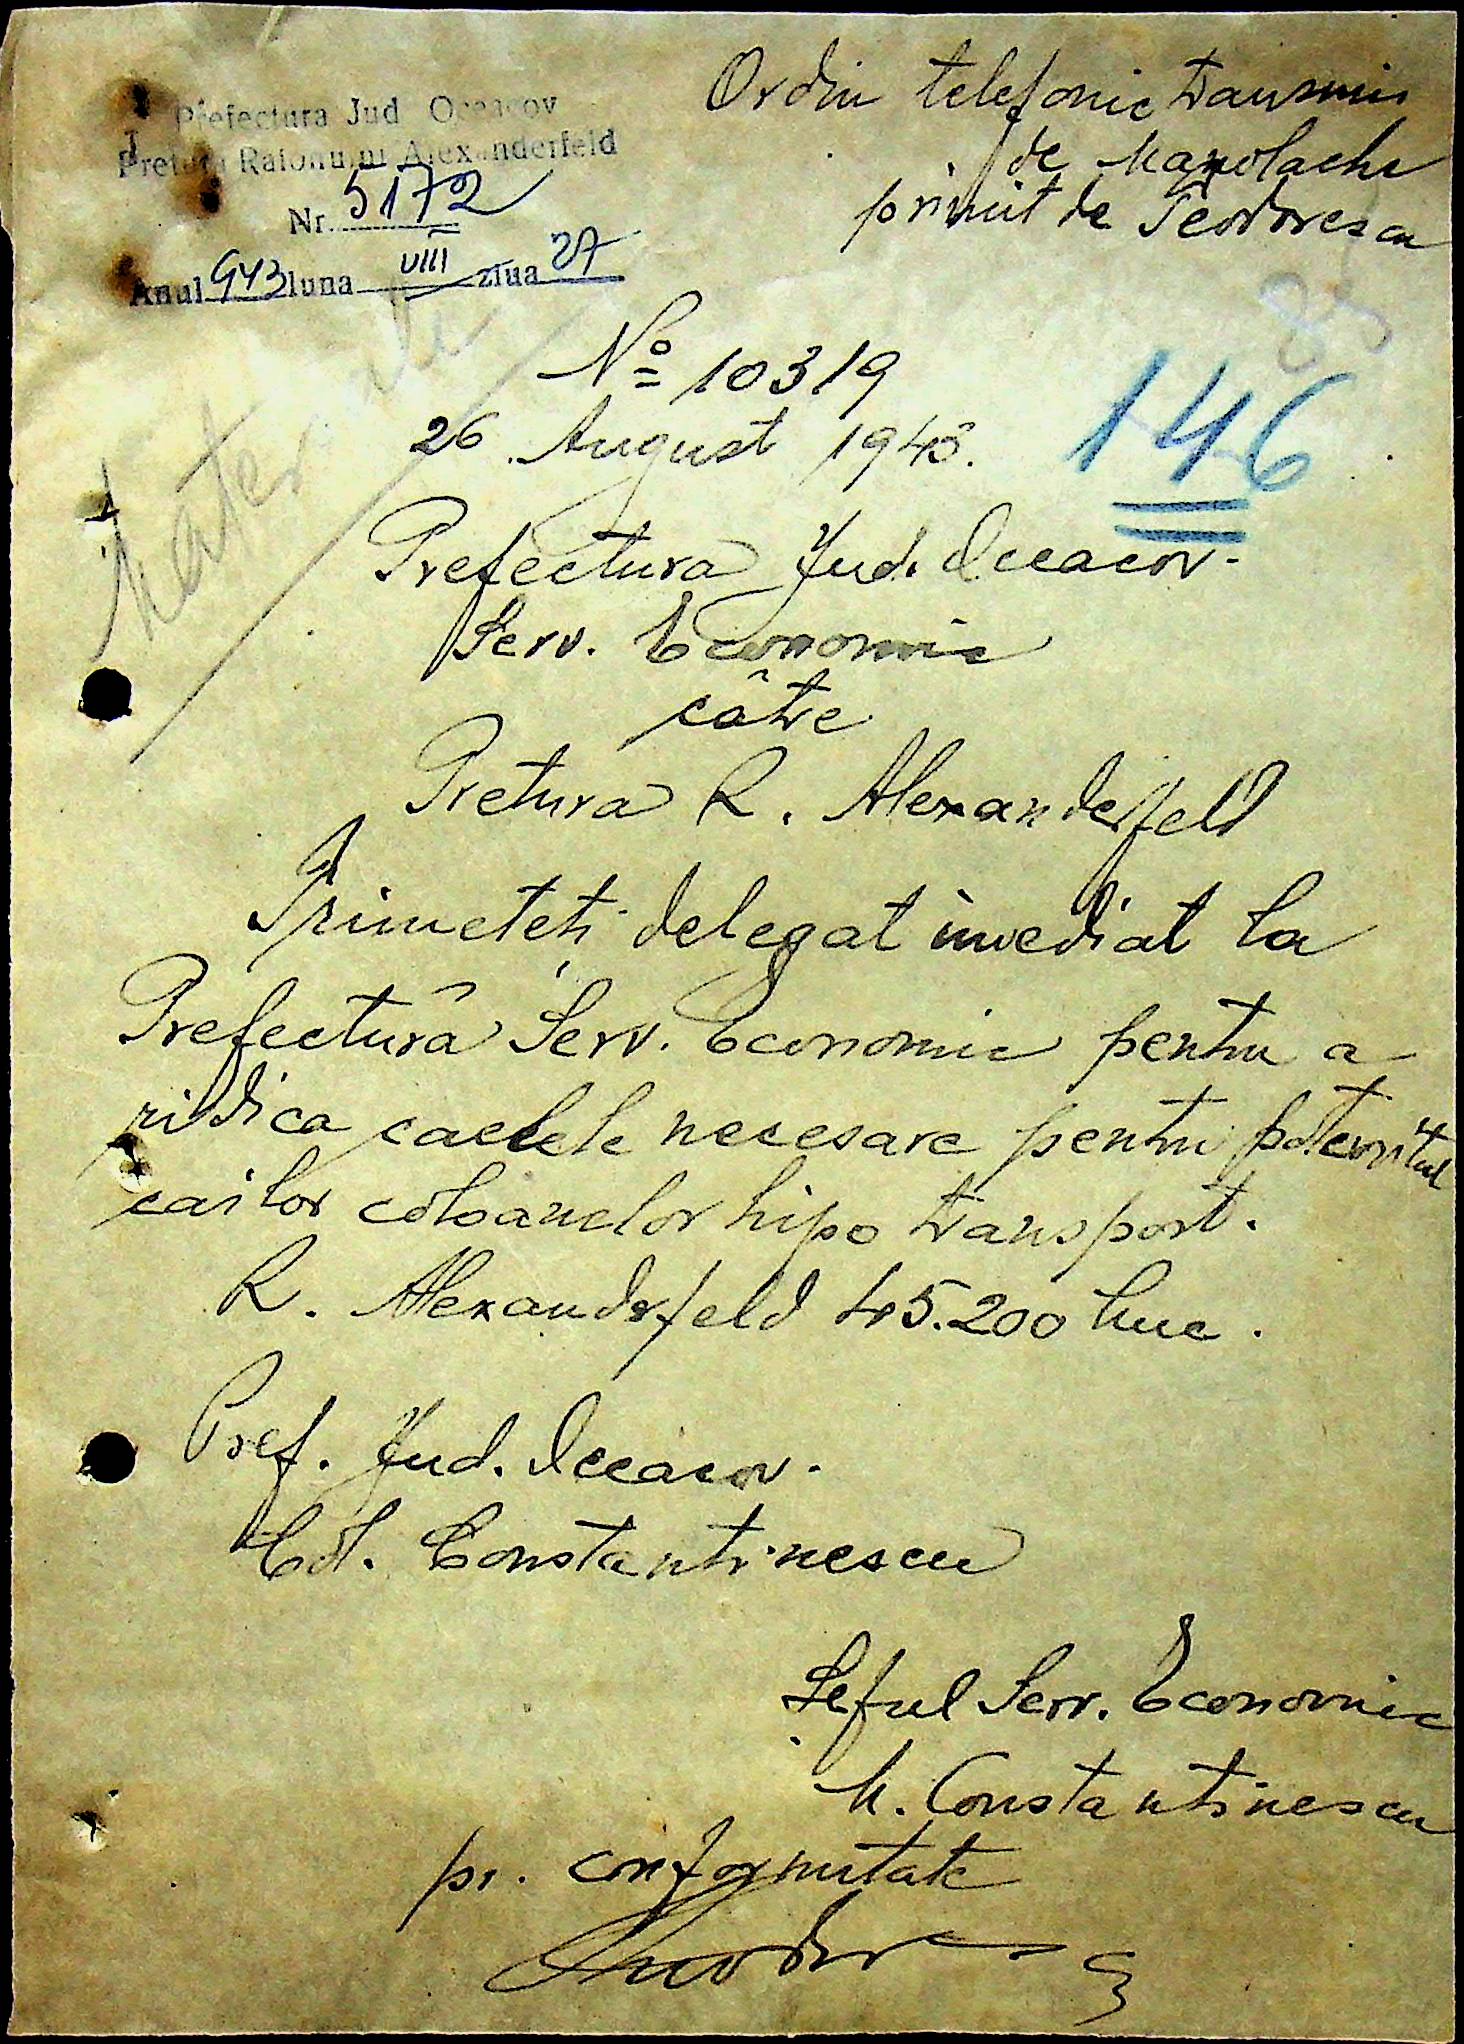 Ordin telefonic transmis
de Manolache
primit de Teodorescu
Prefectura Jud Oceacov
Pretura Raionului Alexanderfeld
Nr. 5172
Anul 943 luna VIII ziua 27
No 10319
26 August 1943.
146
Prefectura Jud. Oceacov.
Serv. Economic
câtre
Pretura R. Alexanderfeld
Trimeteti delegat imediat la
Prefectură Serv. Economic pentru a
ridica caelele necesare pentru potcovitul
cailor coloanelor hipo transport.
R. Alexanderfeld 45.200 buc.
Pref. Jud. Oceacov.
Col. Constantinescu
Șeful Serv. Economic
M. Constantinescu
pr. conformitate